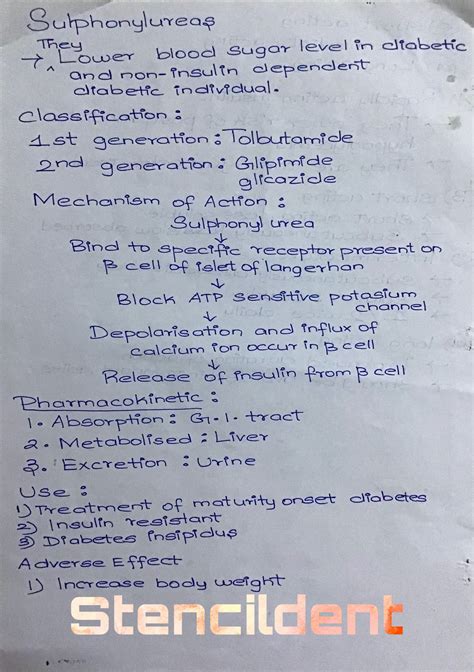 Sulphonylureas
They
→ Lower blood sugar level in diabetic
and non-insulin dependent
diabetic individual.
Classification :
1st generation : Tolbutamide
2nd generation : Glipimide
glicazide
Mechanism of Action :
Sulphonyl urea
↓
Bind to specific receptor present on
β cell of islet of langerhan
↓
Block ATP sensitive potasium
channel
↓
Depolarisation and influx of
calcium ion occur in β cell
↓
Release of insulin from β cell
Pharmacokinetic :
1. Absorption : G.I. tract
2. Metabolised : Liver
3. Excretion : Urine
Use :
1) Treatment of maturity onset diabetes
2) Insulin resistant
3) Diabetes insipidus
Adverse Effect
1) Increase body weight
Stencildent